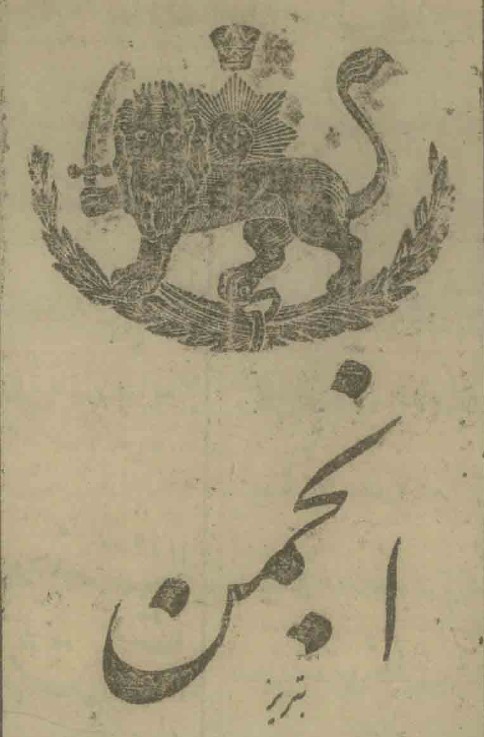 انجمن
تبریز